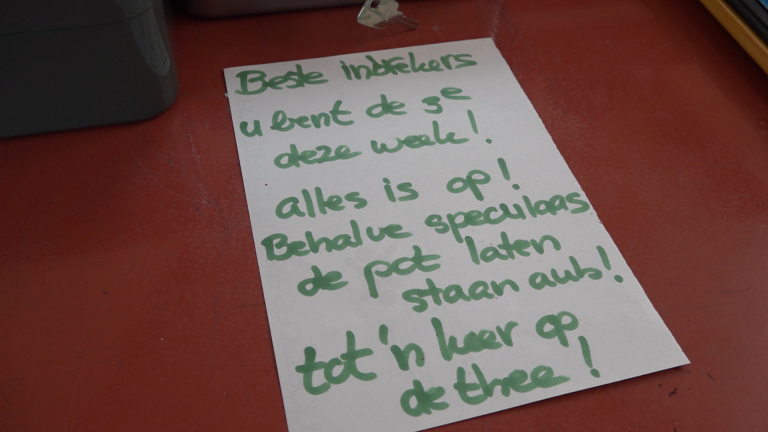 Beste inbrekers
u bent de 3e
deze week!
alles is op!
Behalve speculaas
de pot laten
staan aub!.
tot 'n keer op
de thee!